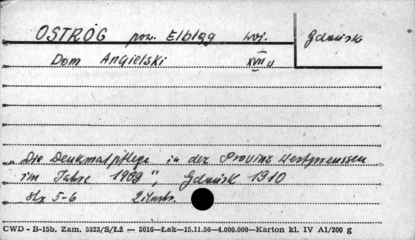 OSTRÓG pow. Elbląg woj. Gdańsk
Dom Angielski XVII w
„Die Denkmalpflege in der Provinz Westpreussen
im Jahre 1909", Gdańsk 1910
str 5-6 2 ilustr.
CWD - B-15b. Zam. 5323/S/Łż — 5016—Łak—15.11.56—4.000.000—Karton kl. IV A1/200 g